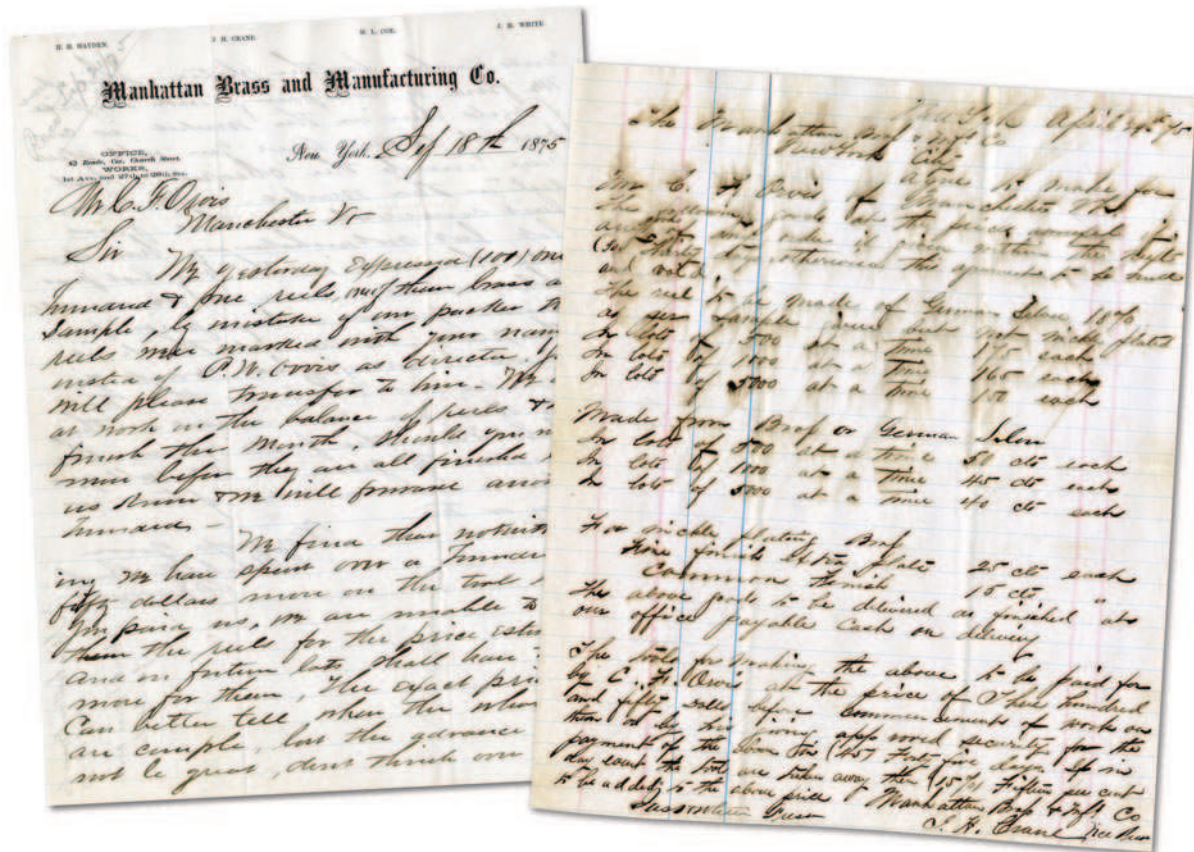 H. H. HAYDEN. J. H. CRANE. W. L. COE. J. H. WHITE
Manhattan Brass and Manufacturing Co.
OFFICE,
83 Reade, Cor. Church Street.
WORKS,
1st Ave. and 27th to 28th Sts.
New York, Sep 18th 1875
Mr C. F. Orvis
Manchester Vt
Sir We yesterday Expressed (100) one
hundred & five reels, one of them brass a
Sample, by mistake of our packer th
reels were marked with your nam
instea of P. W. Orvis as directed. Yo
will please transfer to him. We a
at work on the balance of reels &
finish this month. Should you
more before they are all finished
us know & we will forward
hundred —
We find that notwith
ing we have spent over a hundred
fifty dollars more on the tools
you paid us, we are unable to
the reels for the price esti
and in future lots shall have
more for them, The exact pri
Can better tell when the whol
are comple, but the advance
not be great, dont think ove
New York April 
The Manhattan Brass & Mfg Co
New York City
agree to make for
Mr C. F. Orvis of Manchester Vt
The following goods at the prices 
 if given within the 
 otherwise this agreement to be null
and void.
The reel to be made of German Silver 18%
as per Sample given but not nickle plated
In lots of 500 at a time 175 each
In lots of 1000 at a Time 165 each
In lots of 5000 at a time 150 each
Made from Brass or German Silver
In lots of 500 at a time 50 cts each
In lots of 1000 at a Time 45 cts each
In lots of 5000 at a Time 40 cts each
For nickle plating Brass
Fine finish Extra plate 25 cts each
Common finish 15 cts "
The above goods to be delivered as finished at
our office payable Cash on delivery
The tools for making the above to be paid for
by C. F. Orvis at the price of Three hundred
and fifty dolls before commencements of work on
them or by his giving approved security for the
payment of the above in (45) Forty five days. If in
day event the tools are taken away then (15%) Fifteen per cent
to be added to the above price Manhattan Brass & Mfg Co
J. H. Crane Vice Pres